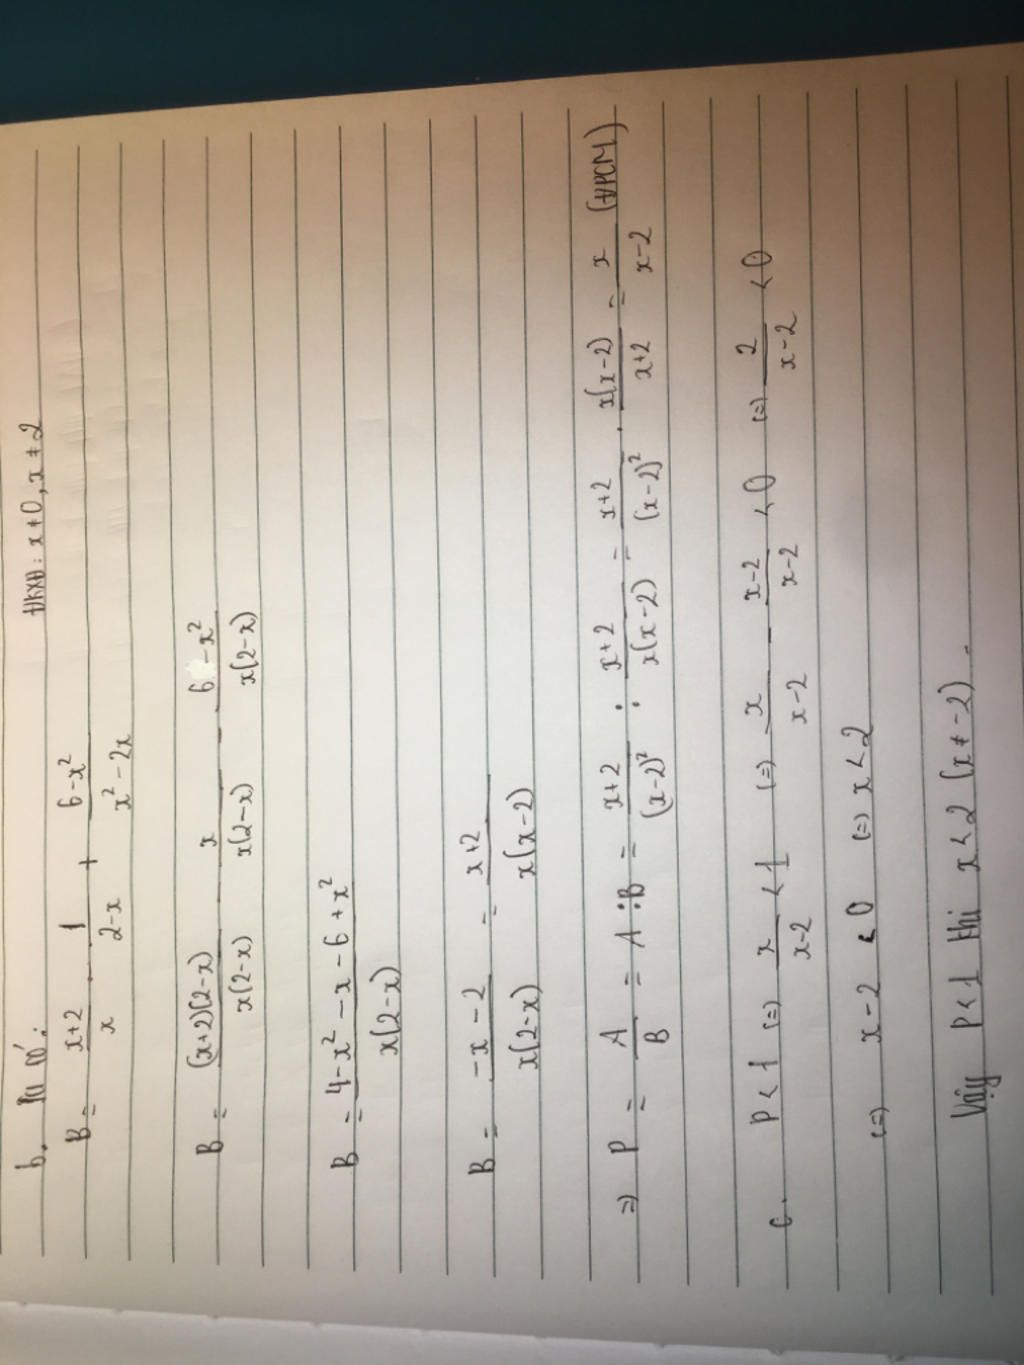 b. Ta có: ĐKXĐ: x ≠ 0, x ≠ 2
B = \frac{x+2}{x} - \frac{1}{2-x} + \frac{6-x^2}{x^2-2x}
B = \frac{(x+2)(2-x)}{x(2-x)} - \frac{x}{x(2-x)} - \frac{6-x^2}{x(2-x)}
B = \frac{4-x^2-x-6+x^2}{x(2-x)}
B = \frac{-x-2}{x(2-x)} = \frac{x+2}{x(x-2)}
=) P = \frac{A}{B} = A : B = \frac{x+2}{(x-2)^2} : \frac{x+2}{x(x-2)} = \frac{x+2}{(x-2)^2} . \frac{x(x-2)}{x+2} = \frac{x}{x-2} (ĐPCM)
c. P < 1 (=) \frac{x}{x-2} < 1 (=) \frac{x}{x-2} - \frac{x-2}{x-2} < 0 (=) \frac{2}{x-2} < 0
(=) x-2 < 0 (=) x < 2
Vậy P < 1 khi x < 2 (x ≠ -2).